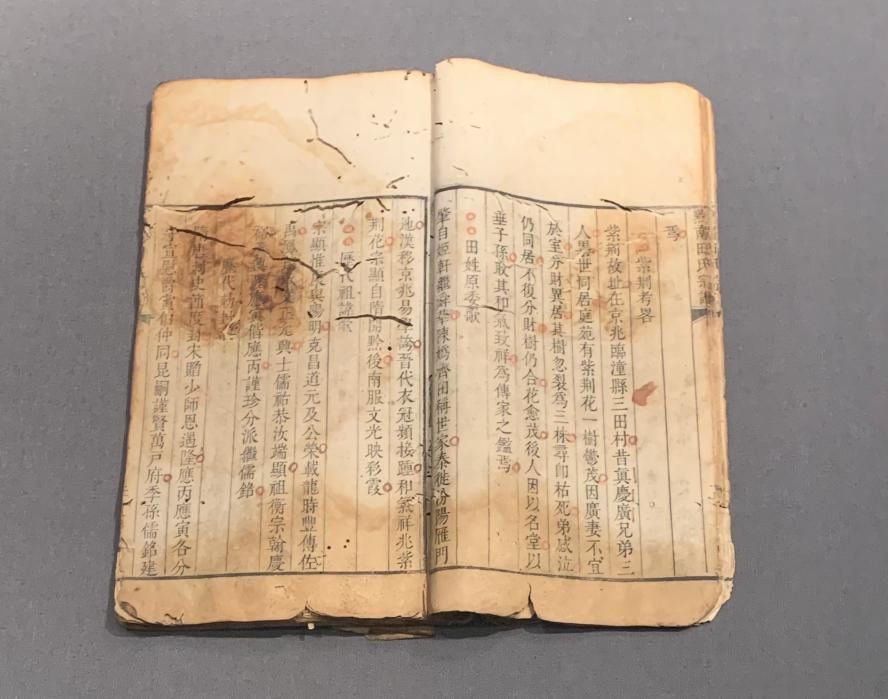 焉
紫荊考畧
紫荊故址在京兆臨潼縣三田村昔眞慶廣兄弟三
人累世同居庭苑有紫荊花一樹鬱茂因廣妻不宜
於室分財異居其樹忽裂爲三株尋卽枯死弟感泣
仍同居不復分財樹仍合花愈茂後人因以名堂以
垂子孫敢其和氣致祥爲傳家之鑑焉
田姓原委歌
肇自姬軒繼 陳嬀齊田稱世家秦徙汾陽雁門
地漢移京兆易學 晉代衣冠頻接踵和氣祥兆紫
荊花宗顯自隋開黔後南服文光映彩霞
歷代祖諱歌
宗顯惟 與陽明克昌道元及公榮載龍時豐傳佐
正允興士儒祐恭汝端顯祖衡宗翰慶
應寅偕應丙謹珍分派繼儒銘
歷代勅封
節度封宋贈少師恩遇隆應丙應寅各分
伯仲同昆嗣謹賢萬戸府季孫儒銘建